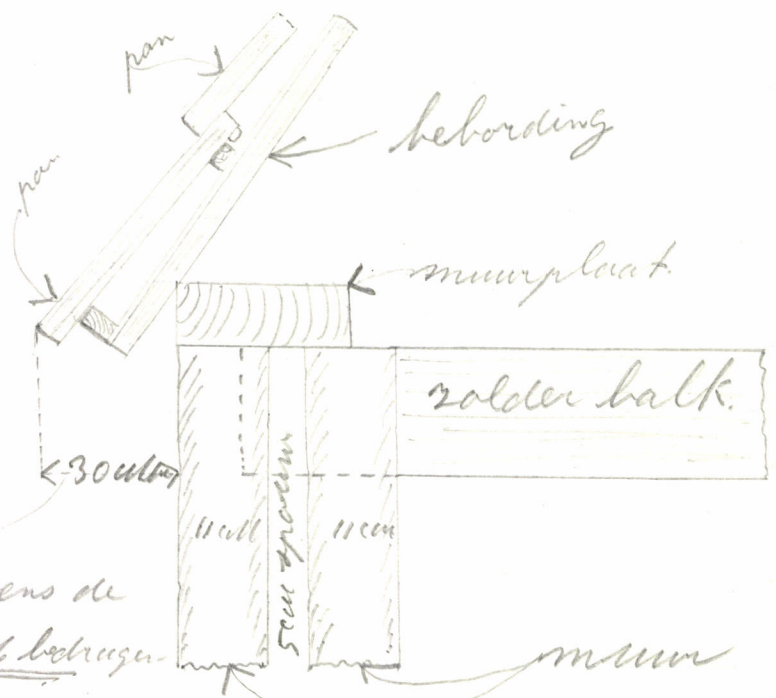 pan
bebording
pan
muurplaat.
zolder balk.
30 cm
11 cm
5 cm spouw
11 cm
ens de
bedragen
muur